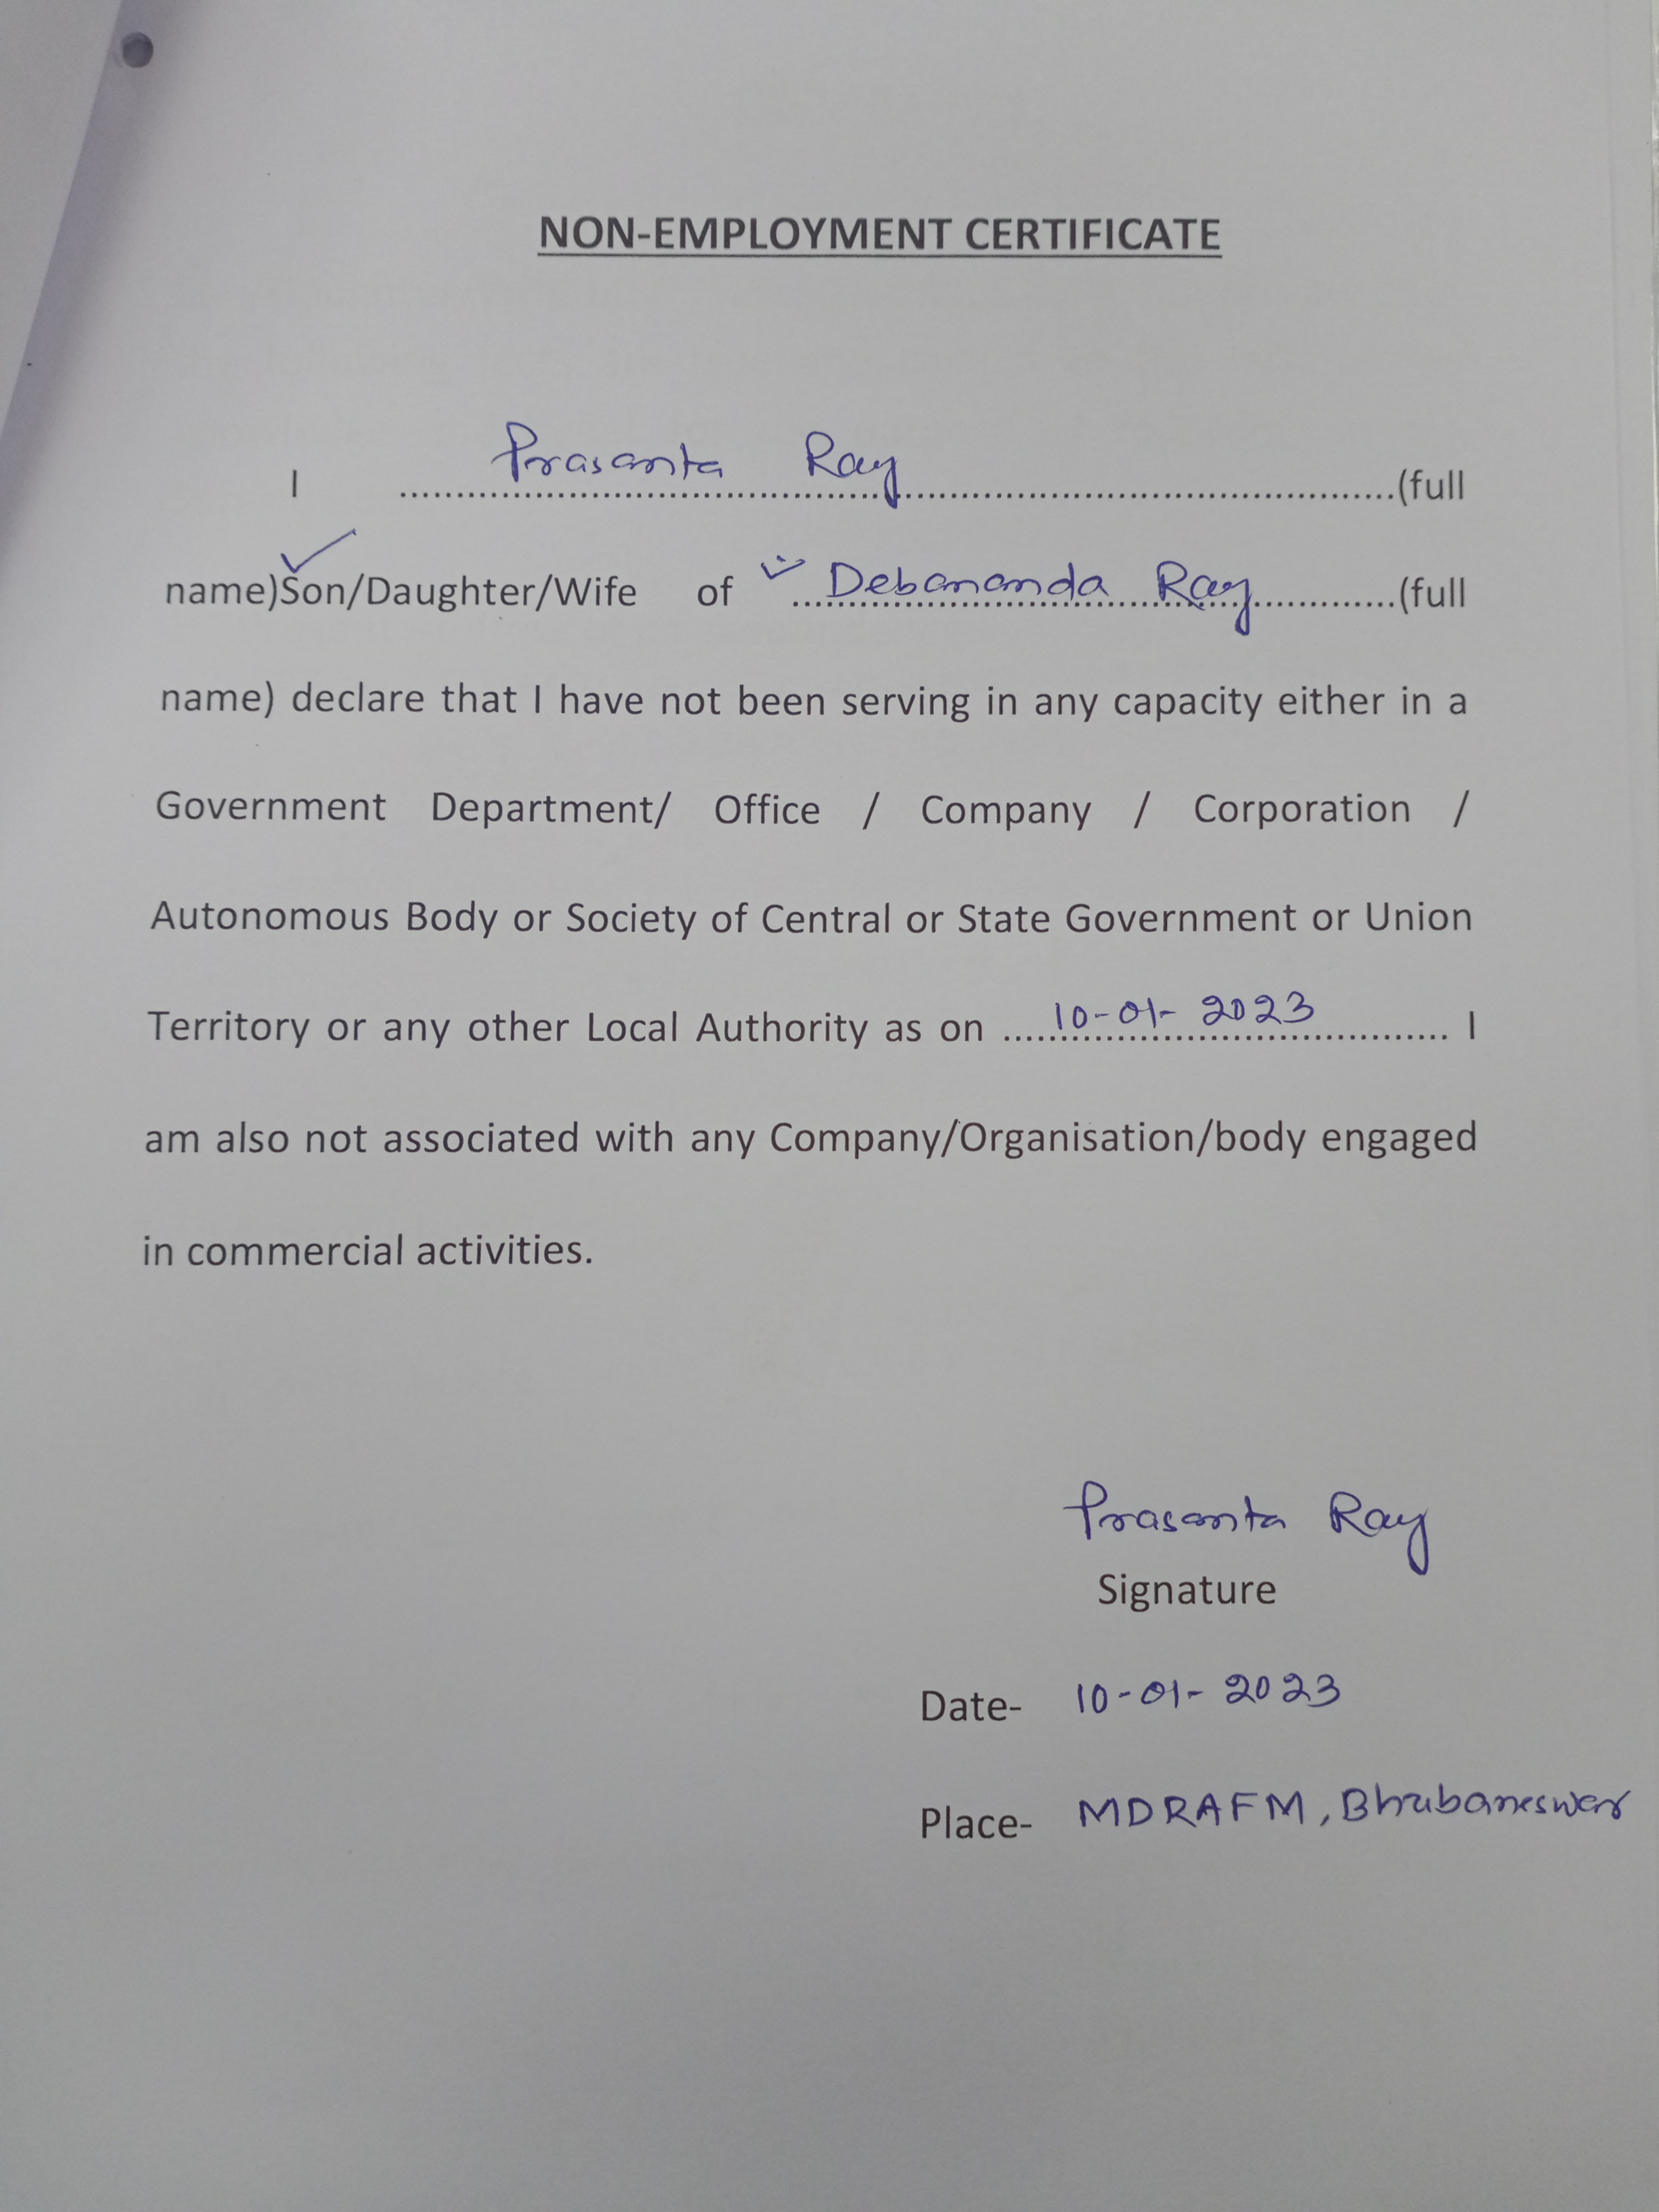 NON-EMPLOYMENT CERTIFICATE
I Prasanta Ray (full
name)Son/Daughter/Wife of Debananda Ray (full
name) declare that I have not been serving in any capacity either in a
Government Department/ Office / Company / Corporation /
Autonomous Body or Society of Central or State Government or Union
Territory or any other Local Authority as on 10-01-2023 I
am also not associated with any Company/Organisation/body engaged
in commercial activities.
Prasanta Ray
Signature
Date- 10-01-2023
Place- MDRAFM, Bhubaneswar